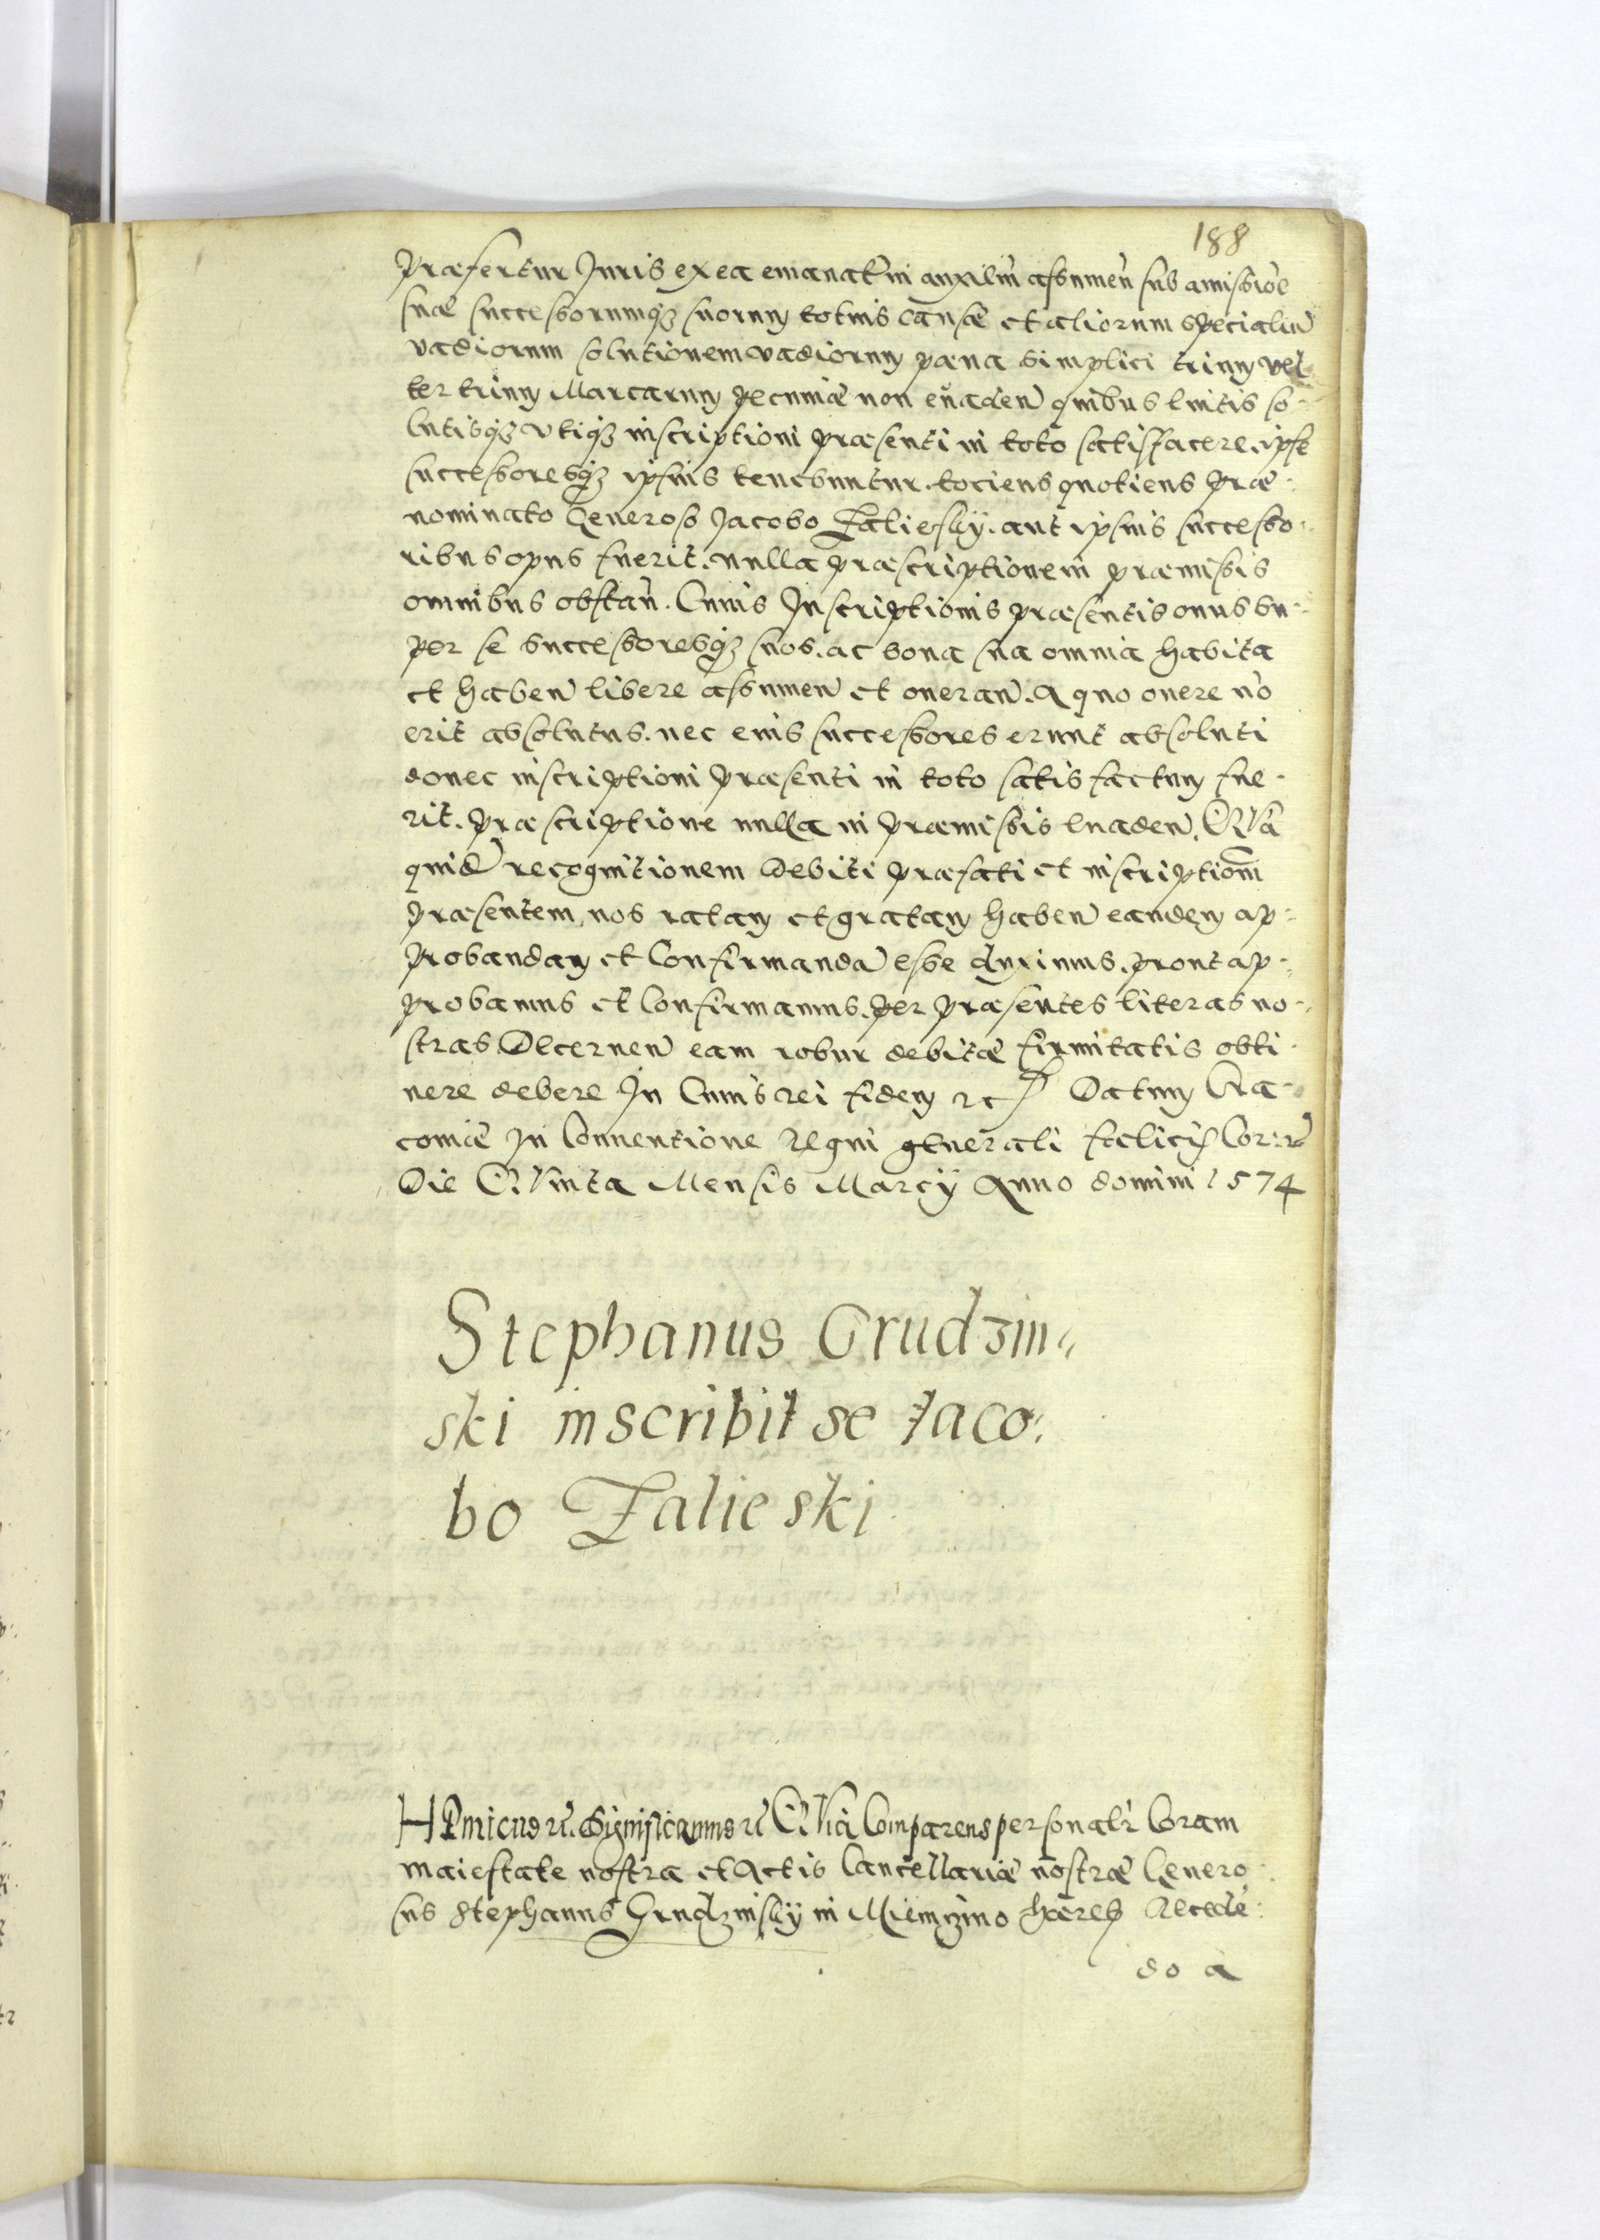 188
præfertur Juris ex ea emanatm̄ in auxiliū assumen̄ sub amissiōe
suæ successorumqz suorum totius causæ et aliorum specialiū
vadiorum solutionem vadiorum pæna simplici trium vel
ter trium Marcarum pecuniæ non evaden̄ quibus luitis so-
lutisqz utiqz inscriptioni præsenti in toto satisfacere. ipse
successoresqz ipsius tenebuntur. tociens quotiens præ-
nominato Generoso Jacobo Zaliesky. aut ipsius successo-
ribus opus fuerit. nulla præscriptione in præmissis
omnibus obstan̄. Cuius Inscriptionis præsentis onus su-
per se successoresqz suos. ac bona sua omnia habita
et haben̄ libere assumen̄ et oneran̄. A quo onere nō
erit absolutus. nec eius successores erunt absoluti
donec inscriptioni præsenti in toto satis factum fue-
rit. præscriptione nulla in præmissis evaden̄. QVā
quid̄ recognitionem Debiti præfati et inscriptiom̄
præsentem, nos ratam et gratam haben̄ eandem ap-
probandam et Confirmandā esse duximus. prout ap-
probamus et Confirmamus. per præsentes literas no-
stras. Decernen̄ eam robur debitæ firmitatis obti-
nere debere In Cuius rei fidem etc. Datum Cra-
coviæ In Conventione Regni generali fælicis Cor: n̄ræ
Die QVinta Mensis Marcÿ Anno domini 1574
Stephanus Grudzin-
ski inscribit se Iaco-
bo Zalieski
HEnricus etc. Significamus etc QVia Comparens personalr̄ Coram
maiestate nostra et Actis Cancellariæ nostræ Genero-
sus Stephanus Grudzinsky in Miemzino hæres Recedē-
do a